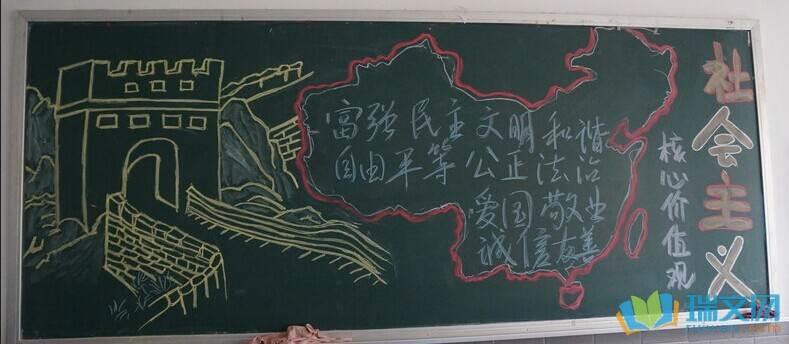 社会主义
核心价值观
富强民主文明和谐
自由平等公正法治
爱国敬业
诚信友善
瑞文网